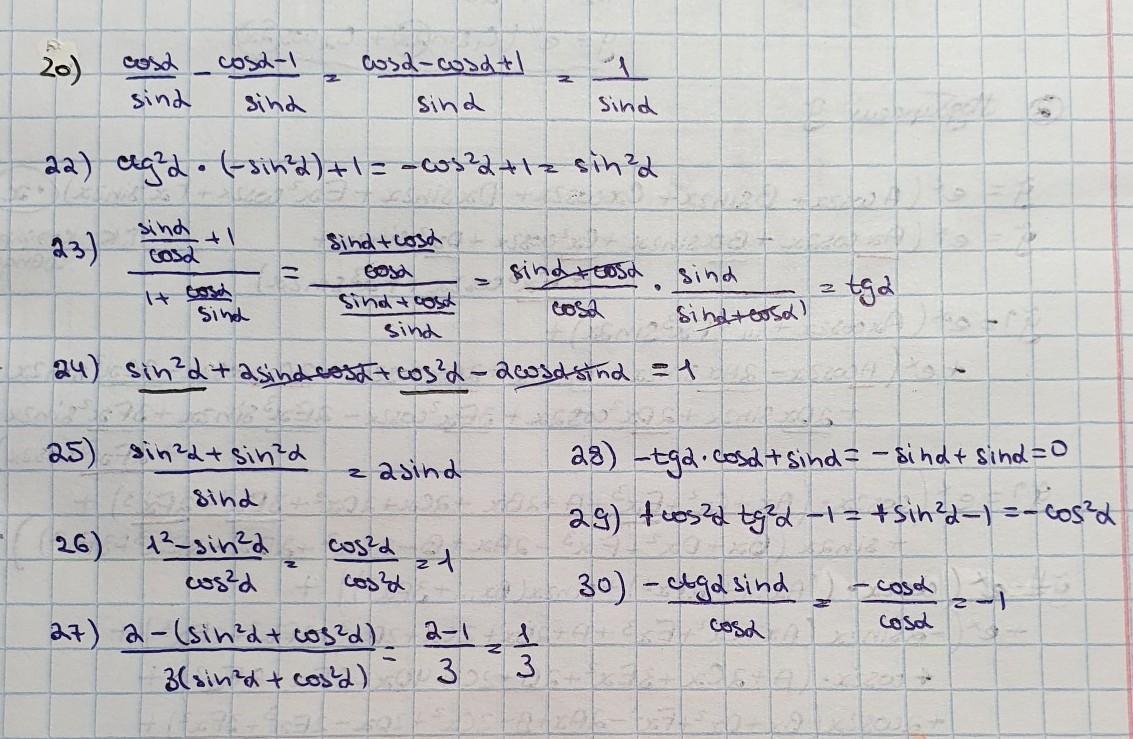 20) cosα/sinα - cosα-1/sinα = cosα-cosα+1/sinα = 1/sinα
22) ctg²α · (-sin²α)+1 = -cos²α+1 = sin²α
23) (sinα/cosα +1)/(1+ cosα/sinα) = (sinα+cosα/cosα)/(sinα+cosα/sinα) = sinα+cosα/cosα · sinα/(sinα+cosα) = tgα
24) sin²α + 2sinαcosα + cos²α - 2cosαsinα = 1
25) sin²α + sin²α/sinα = 2sinα
26) 1²-sin²α/cos²α = cos²α/cos²α = 1
27) 2-(sin²α + cos²α)/3(sin²α + cos²α) = 2-1/3 = 1/3
28) -tgα·cosα+sinα = -sinα+sinα=0
29) +cos²α tg²α -1 = +sin²α-1 = -cos²α
30) -ctgα sinα/cosα = -cosα/cosα = -1